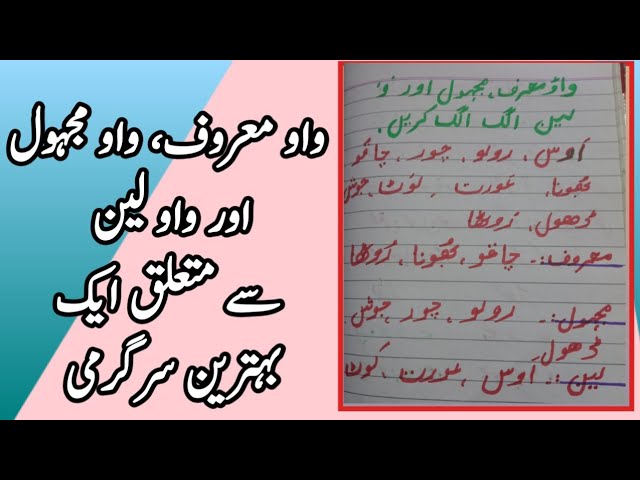 واو معروف، واو مجہول
اور واو لین
سے متعلق ایک
بہترین سرگرمی
واؤ معرف، مجہول اور وٗ
لین الگ الگ کریں.
اَوس، روبو، چور، چاقو
عَورت، لَوٹ، جوش
ڈھول، رُوٹھا
معروف:۔ چاقو، رُوٹھا
مجہول:۔ روبو، چور، جوش
ڈھول
لین:۔ اَوس، عورت، لَوٹ